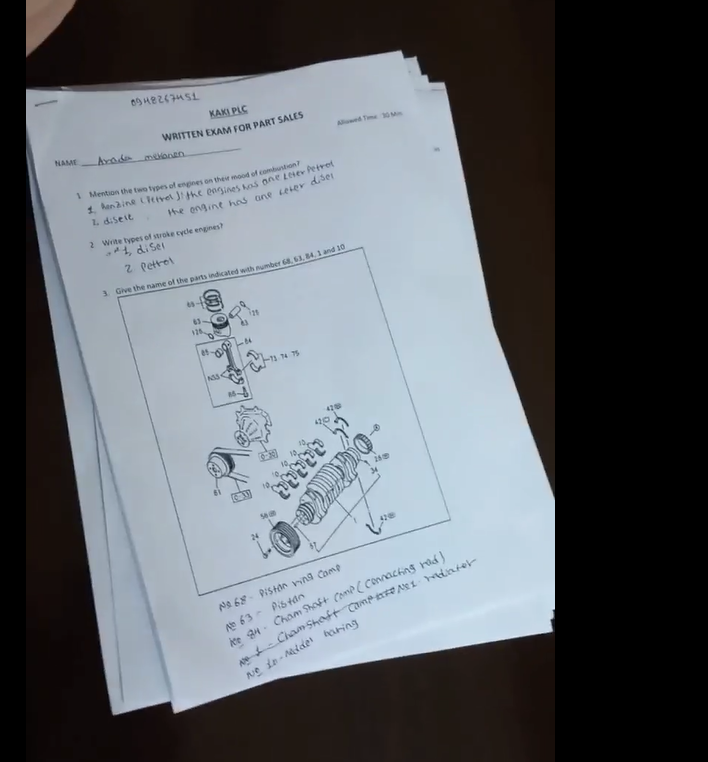 0948267451
KAKI PLC
WRITTEN EXAM FOR PART SALES
Allowed Time: 30 Min
NAME
1. Mention the two types of engines on their mood of combustion?
1. Benzine (Petrol): the engines has one Leter Petrol
2. disele. the engine has one Leter disel
2. Write types of stroke cycle engines?
1, diSel
2. Petrol
3. Give the name of the parts indicated with number 68, 63, 84, 1 and 10
68
125
63
83
125
84
85
73 74 75
NSS
86
42
42
10
10
10
10
10
34
81
58
24
37
1
42
No 68 - Pistan ring Comp
No 63 - Pistan
No 84 - Cham Shaft Comp (Connacting rad)
No 1 - Cham Shaft Comp No1 radiater
No 10 - neddel baring